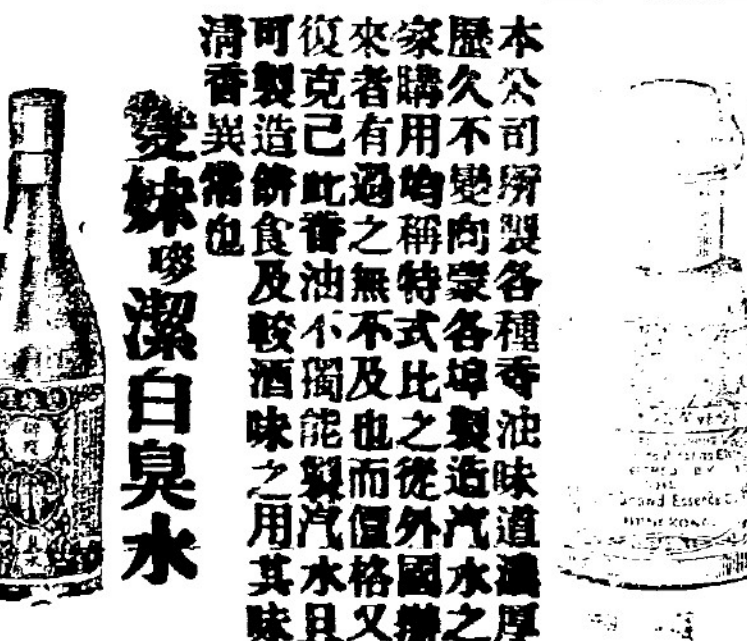 本公司所製各種香油味道濃厚
歷久不變向蒙各埠製造汽水之
家購用均稱特式比之從外國辦
來者有過之無不及也而價格又
復克己此香油不獨能製汽水且
可製造餅食及較酒味之用其味
清香異常也
雙妹嘜潔白臭水
Grand Essence C
HONG KONG